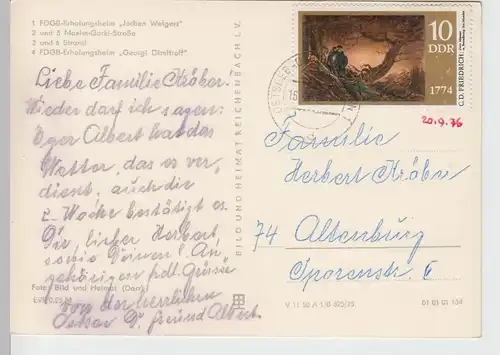 1 FDGB-Erholungsheim „Jochen Weigert"
2 und 5 Maxim-Gorki-Straße
3 und 6 Strand
4 FDGB-Erholungsheim „Georgi Dimitroff"
Liebe Familie Kröber.
Wieder darf ich sagen:
Albert hat das
Wetter, das er ver-
dient, auch die
2. Woche bestätigt es.
Dir, lieber Herbert,
sowie Deinen l. An-
gehörigen hdl. Grüsse
von der herrlichen
Ostsee D. Freund Albert.
Foto: Bild und Heimat (Darr)
BILD UND HEIMAT REICHENBACH I. V.
10
DDR
C. D. FRIEDRICH
1774
20.9.76
Familie
Herbert Kröber
74 Altenburg
Sporenstr. 6
V 11 50 A 1/B 695/75
01 01 01 134